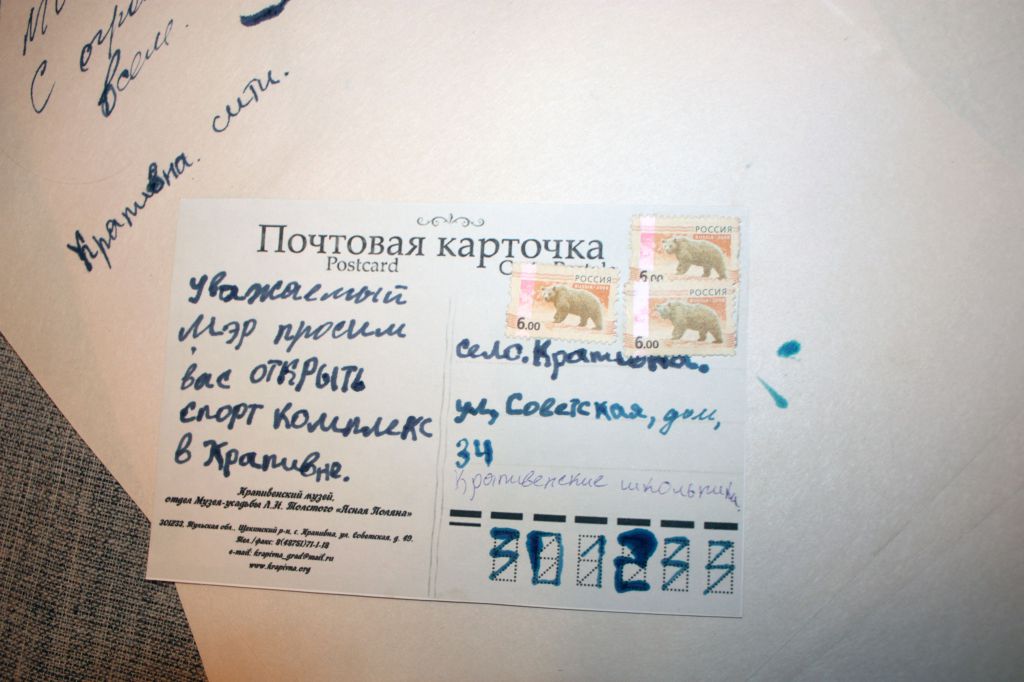 С
всем.
Крапивна. сити.
Почтовая карточка
Postcard
уважаемый
мэр просим
вас открыть
спорт комплекс
в Крапивне.
Крапивенский музей,
отдел Музея-усадьбы Л.Н. Толстого «Ясная Поляна»
301233, Тульская обл., Щекинский р-н, с. Крапивна, ул. Советская, д. 49.
Тел./факс: 8(48751)71-1-18
e-mail: krapivna_grad@mail.ru
www.krapivna.org
РОССИЯ
6.00
РОССИЯ
6.00
РОССИЯ
6.00
село.Крапивна.
ул, Советская, дом,
34
Крапивенские школьники
301233